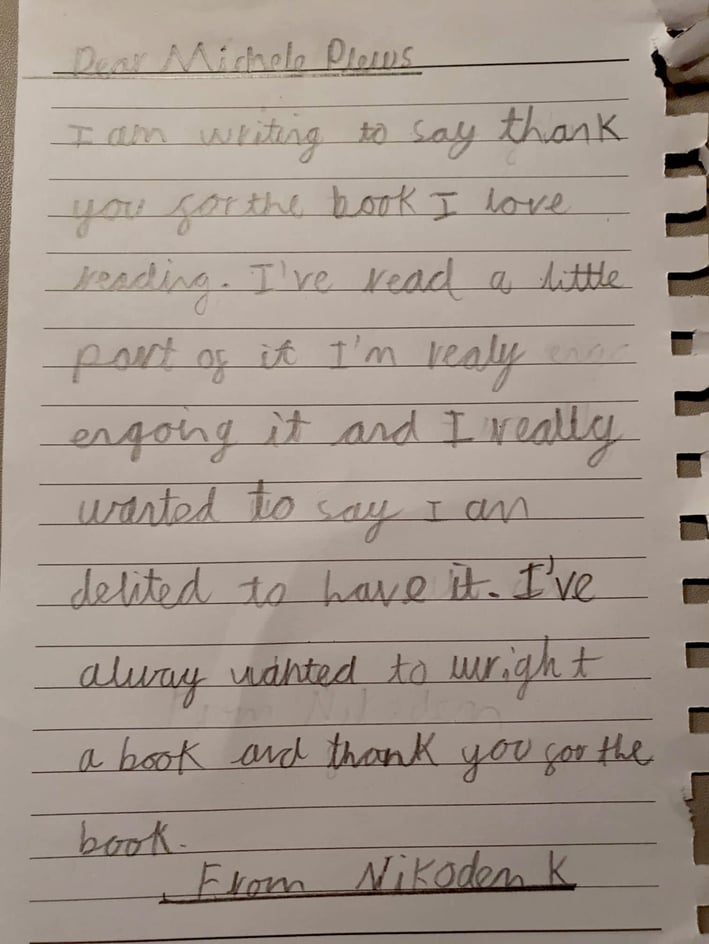 Dear Michele Plews
I am writing to say thank
you for the book I love
reading. I've read a little
part of it I'm realy
engoing it and I really
wanted to say I am
delited to have it. I've
alway wanted to wright
a book and thank you for the
book.
From Nikodem K